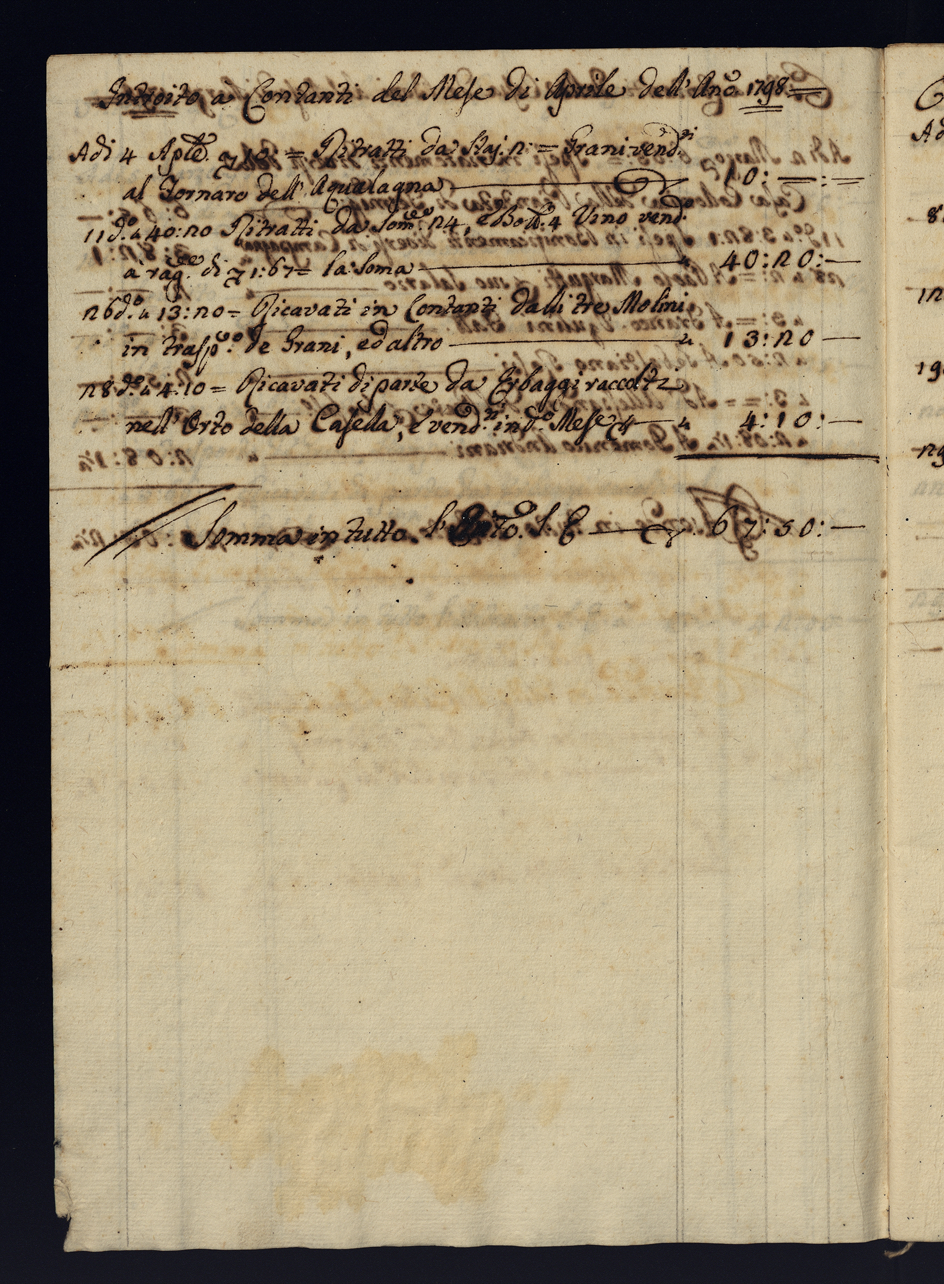 Introito a Contanti del Mese di Aprile dell'Año 1798
Adi 4 Aple. 10 = Ritratti da Staj. 2: = Grani vendti
al Fornaro dell'Aqualagna 10: — : =
11 do. " 40:20 Ritratti da Some 24, e Bott. 4 Vino vend.
a rage. di 1:67 = la Soma " 40:20: —
26 do. " 13:20 = Ricavati in Contanti dalli tre Molini
in trasp.o de Grani, ed altro " 13:20 —
28 do. " 4:10 = Ricavati di parte da Erbaggi raccolti
nell'Orto della Casella, e vendti. in do. Mese " 4:10: —
Somma in tutto l' S. E. 67:50: —